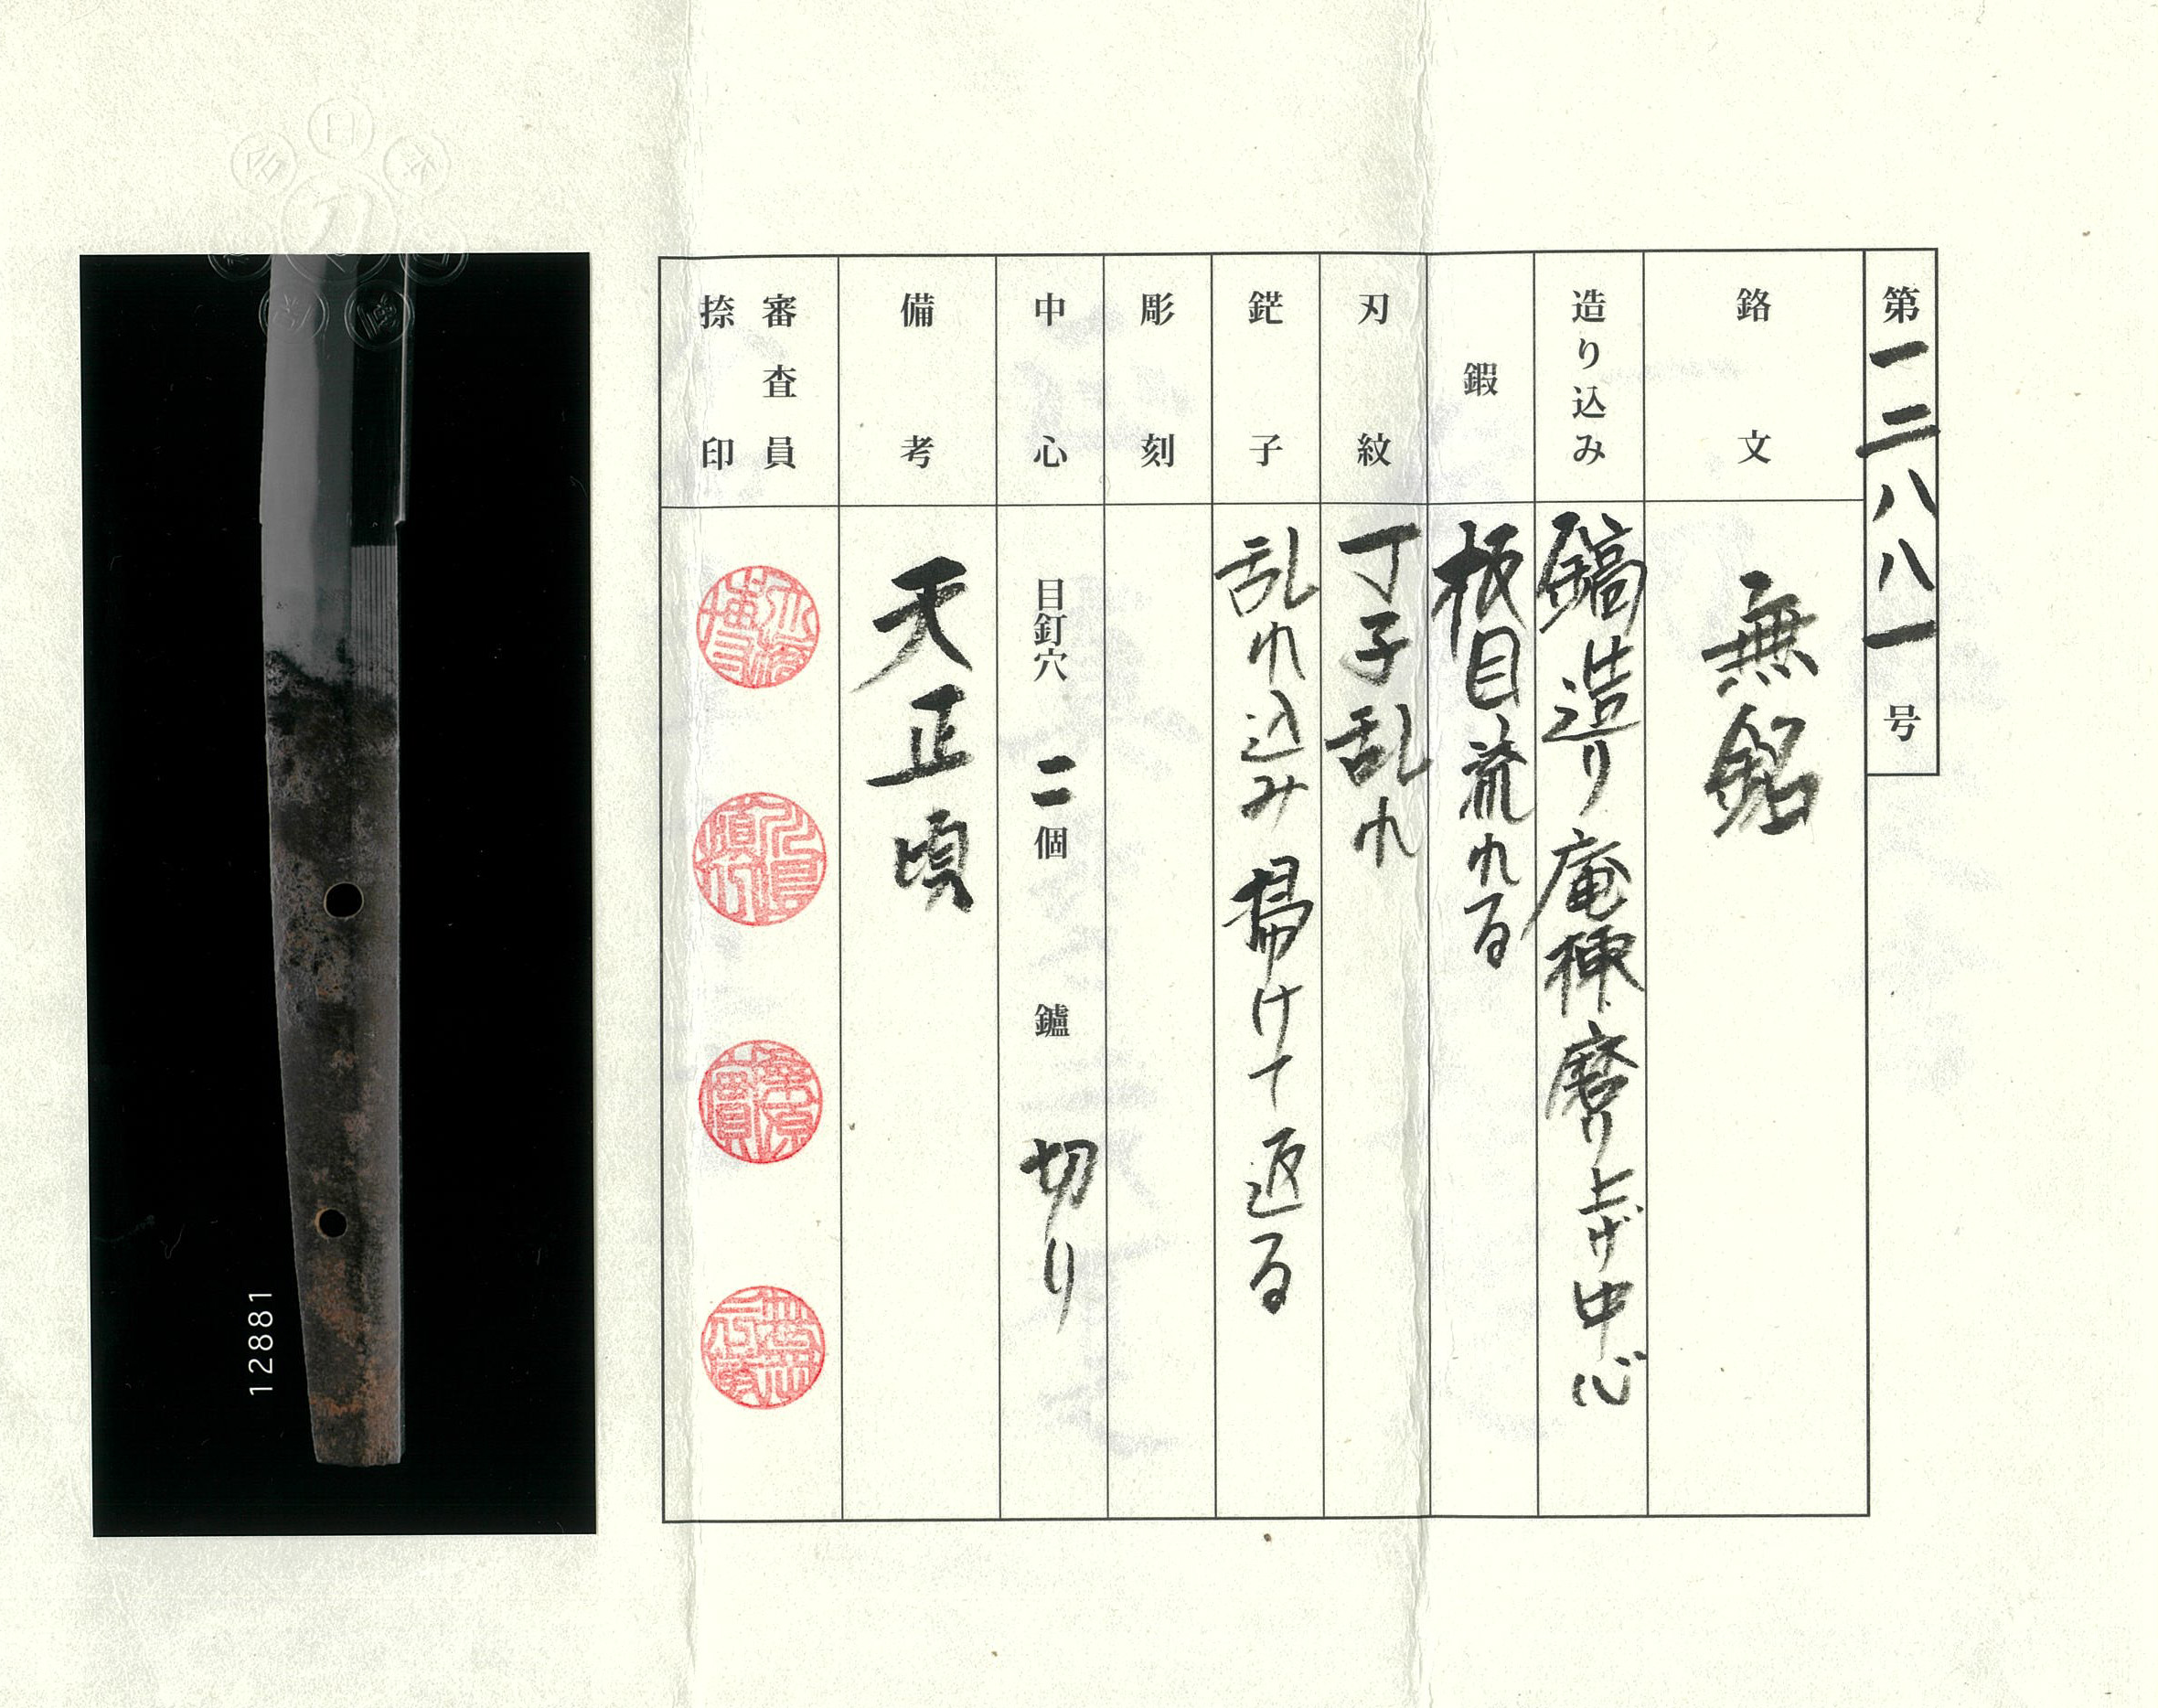 第一二八八一号
銘文
無銘
造り込み
鎬造り庵棟磨り上げ中心
鍜
板目流れる
刃紋
丁子乱れ
鋩子
乱れ込み掃けて返る
彫刻
中心
目釘穴 二個 鑪 切り
備考
天正頃
審査員
捺印
12881